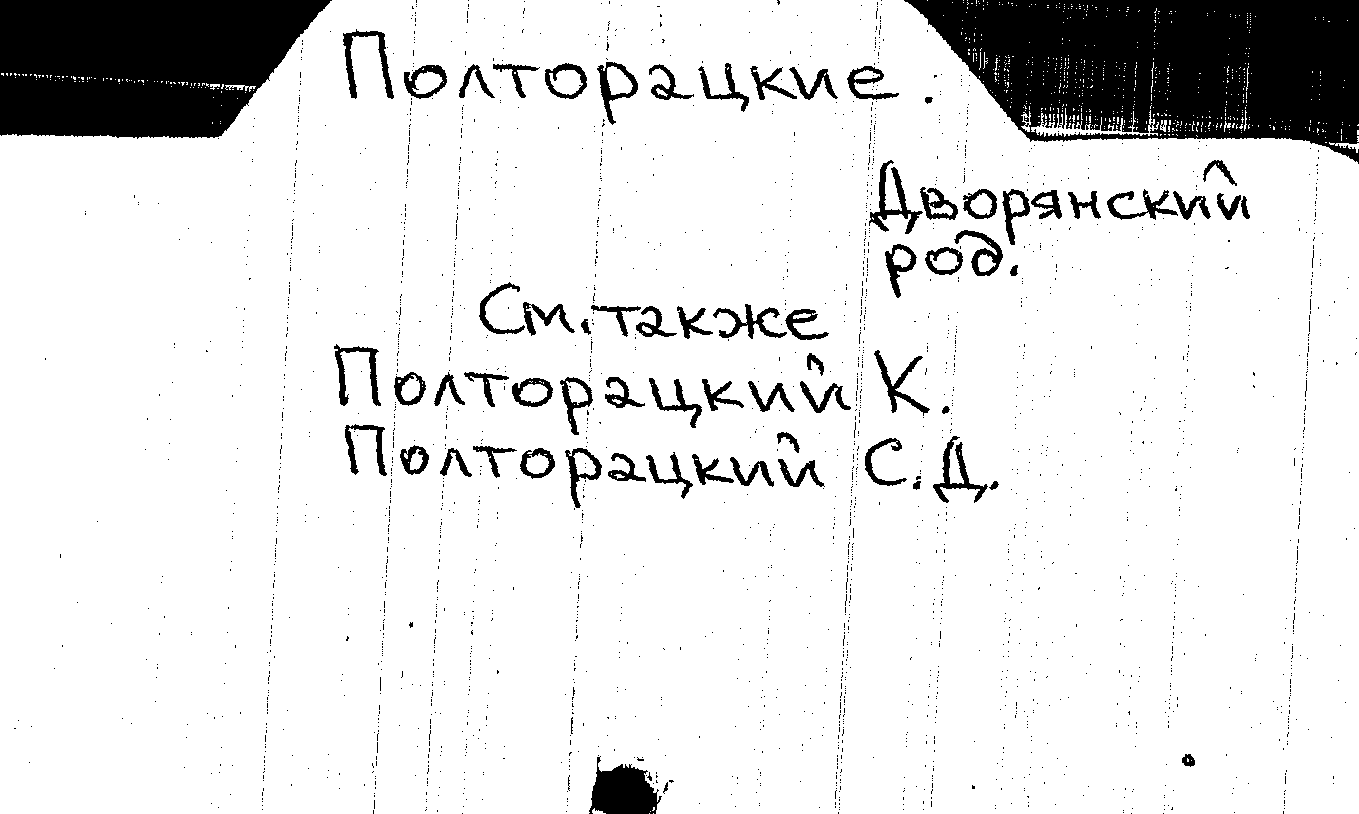 Полторацкие.
Дворянский
род.
См. также
Полторацкий К.
Полторацкий С.Д.